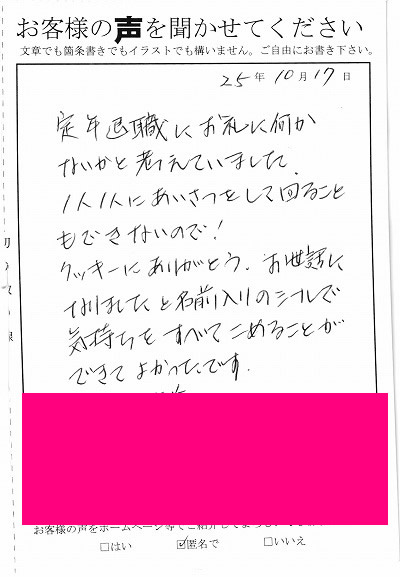 お客様の声を聞かせてください
文章でも箇条書きでもイラストでも構いません。ご自由にお書き下さい。
25年10月17日
定年退職にお礼に何か
ないかと考えていました。
1人1人にあいさつをして回ること
もできないので!
クッキーにありがとう、お世話に
なりましたと名前入りのシールで
気持ちをすべてこめることが
できてよかったです。
お客様の声をホームページ等でご紹介して
□はい ☑匿名で □いいえ